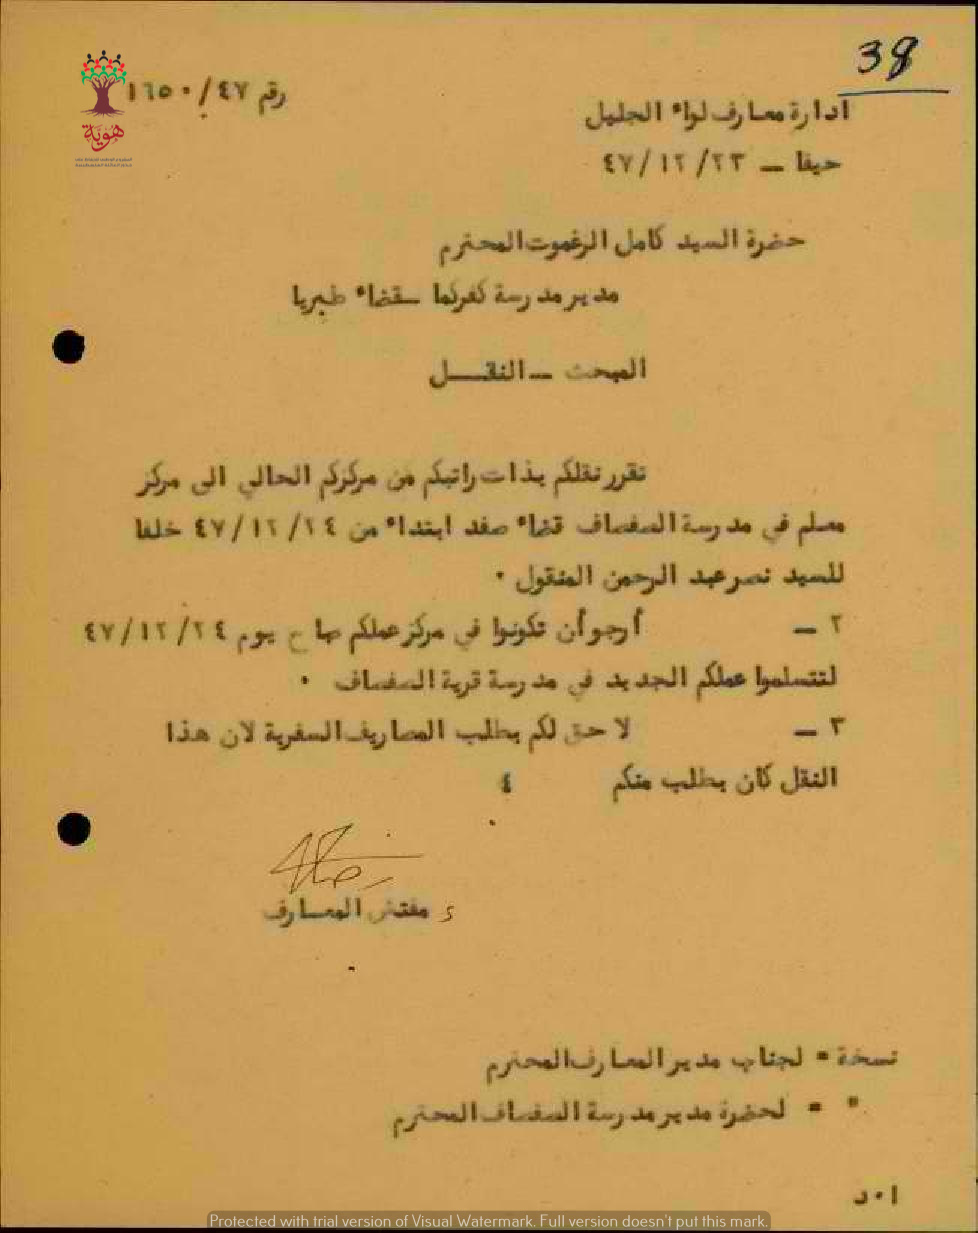 38
رقم ١٦٥٠/٤٧
هوية
ادارة معارف لواء الجليل
حيفا – ٤٧/١٢/٢٣
حضرة السيد كامل الرغموت المحترم
مدير مدرسة كفركما سقضاء طبريا
المبحث – النقـــل
تقرر نقلكم بذات راتبكم من مركزكم الحالي الى مركز
معلم في مدرسة الصفصاف قضاء صفد ابتداء من ٤٧/١٢/٢٤ خلفا
للسيد نصر عبد الرحمن المنقول ٠
٢ – أرجو أن تكونوا في مركز عملكم صباح يوم ٤٧/١٢/٢٤
لتتسلموا عملكم الجديد في مدرسة قرية الصفصاف ٠
٣ – لا حق لكم بطلب المصاريف السفرية لان هذا
النقل كان بطلب منكم ٤
مفتش المعارف
نسخة = لجناب مدير المعارف المحترم
" = لحضرة مدير مدرسة الصفصاف المحترم
ا٠د
Protected with trial version of Visual Watermark. Full version doesn't put this mark.